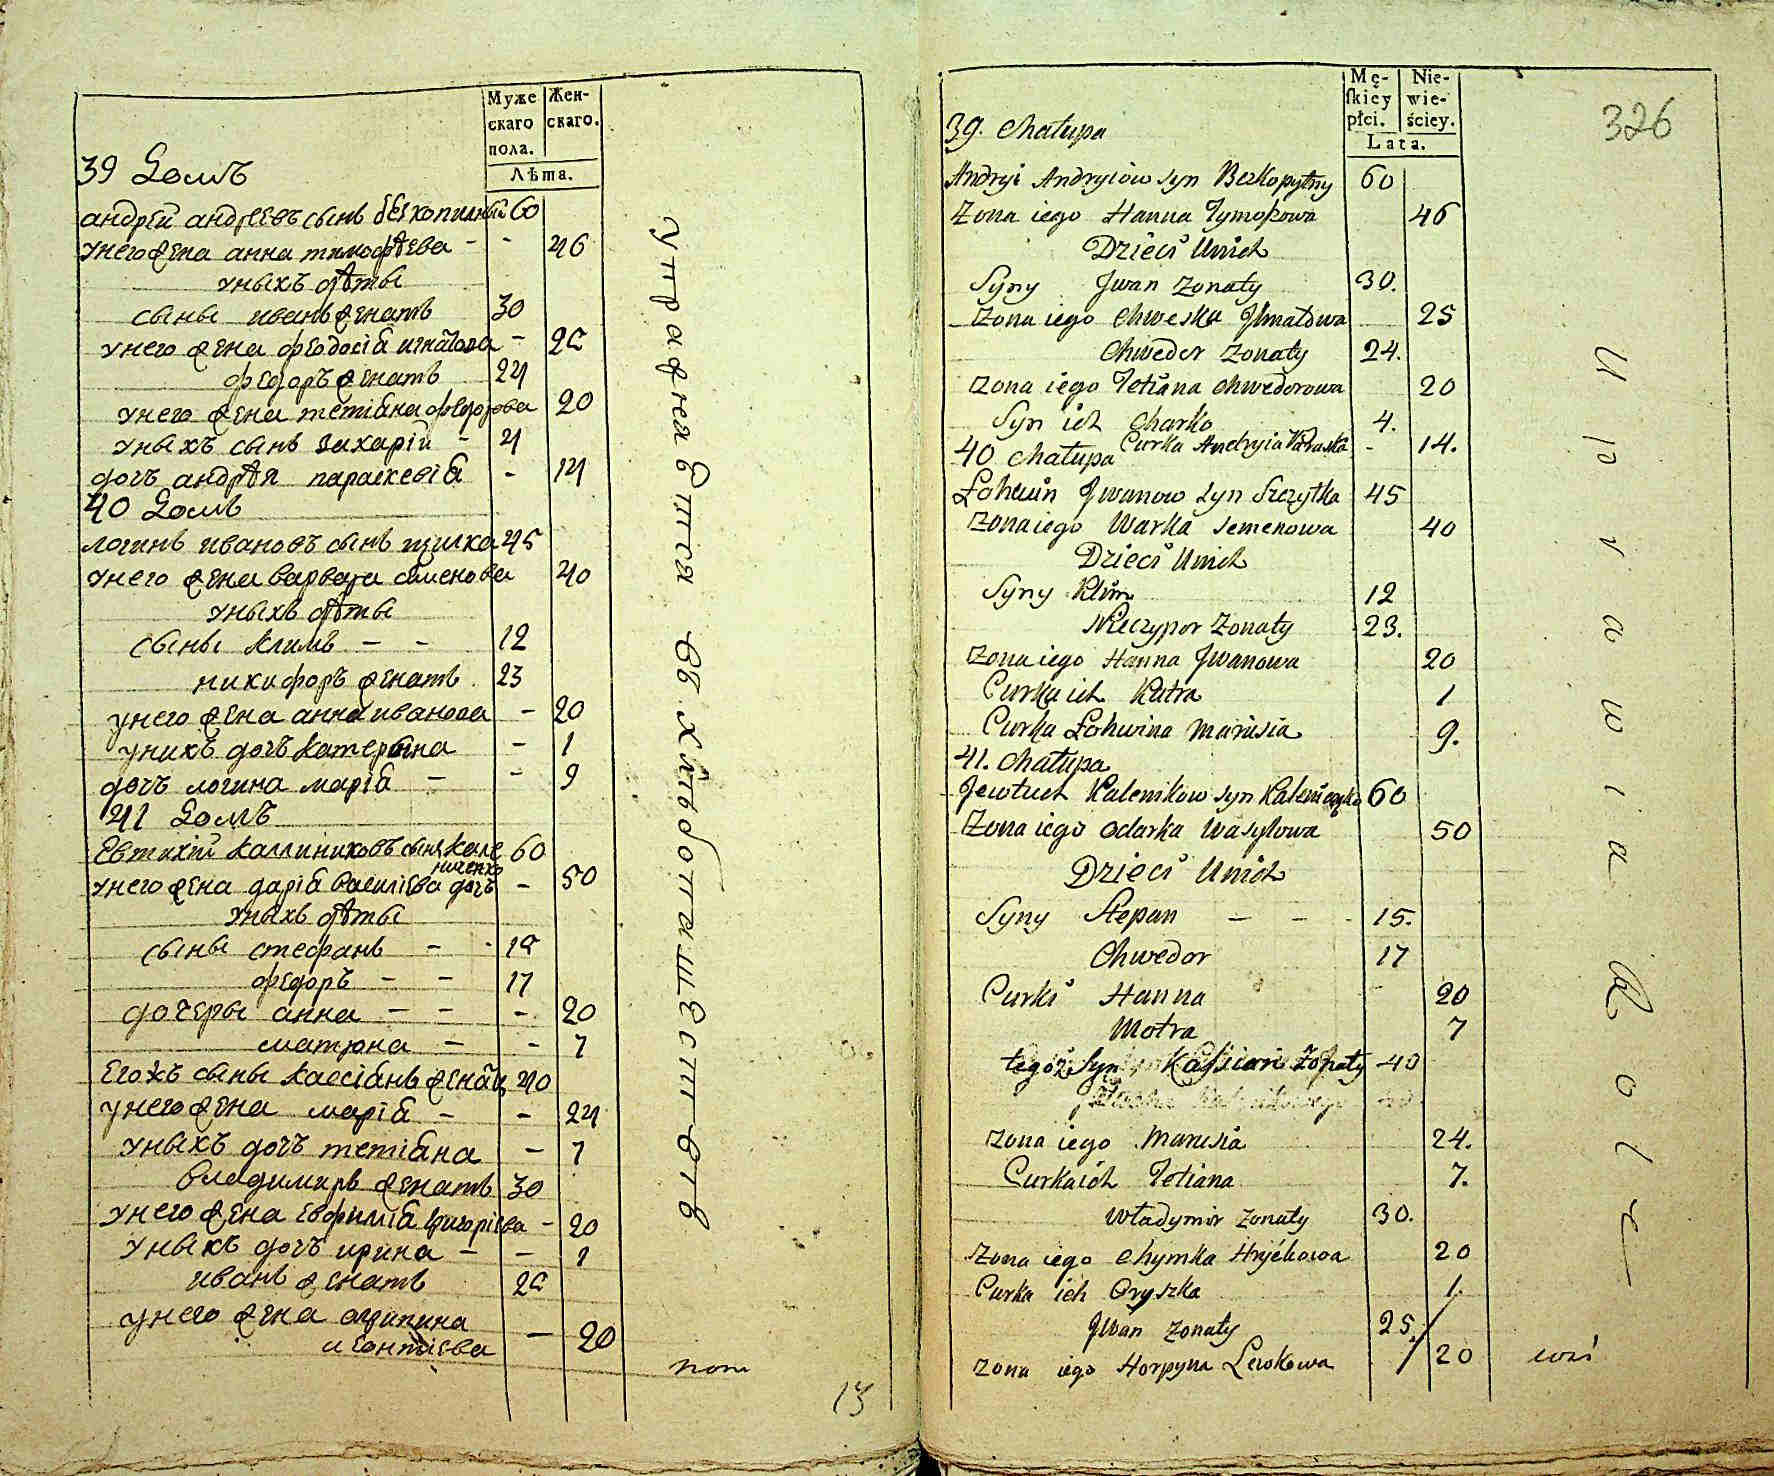 Муже
скаго
пола.
Жен-
скаго.
Лѣта.
39 Домъ
андрей андреевъ сынъ безкопытный 60
унего жена анна тимофѣева - - 46
уныхъ дѣты
сыны иванъ женатъ 30
унего жена феодосіа игнатова - 25
федоръ женатъ 24
унего жена тетіана федорова 20
уныхъ сынъ захарій - 4
дочъ андрѣя параскевіа - 14
40 Домъ
логинъ ивановъ сынъ щитка 45
унего жена варвара семенова 40
уныхъ дѣты
сыны климъ - - 12
никифоръ женатъ 23
унего жена анна иванова - 20
унихъ дочъ катерына - 1
дочъ логина маріа - - 9
41 Домъ
Евтихій каллиниковъ сынъ кале
ниченко 60
унего жена даріа василіева дочъ - 50
уныхъ дѣты
сыны стефанъ - - 15
федоръ - - 17
дочеры анна - - - 20
матрона - - 7
Егожъ сыны кассіанъ женатъ 40
унего жена маріа - - 24
уныхъ дочъ тетіана - 7
владимиръ женатъ 30
унего жена евфиміа григоріева - 20
уныхъ дочъ ирина - - 1
иванъ женатъ 25
унего жена агрипина
леонтіева - 20
упражнается въ хлѣбопашествѣ
13
Mę-
ſkiey
płci.
Nie-
wie-
ściey.
Lata.
326
39. Chałupa
Andryi Andryiow syn Bezkopytny 60
Zona iego Hanna Tymoszowa 46
Dzieci Unich
Syny Jwan Zonaty 30.
Zona iego Chweska Jhnatowa 25
Chwedor Zonaty 24.
Zona iego Tetiana Chwedorowa 20
Syn ich Charko 4.
Curka Andryia Paraska - 14.
40 Chałupa
Łohwin Jwanow syn Szczytka 45
Zona iego Warka Semenowa 40
Dzieci Unich
Syny Klim 12
Nieczypor Zonaty 23.
Zona iego Hanna Jwanowa 20
Curka ich Katra 1
Curka Łohwina Marusia 9.
41. Chałupa
Jewtuch Kalenikow syn Kaleniczenko 60
Zona iego Odarka Wasylowa 50
Dzieci Unich
Syny Stepan - - - 15.
Chwedor 17
Curki Hanna - 20
Motra 7
tegoż Syn Kassian Żonaty 40
Zona iego Marusia 24.
Curka ich Tetiana 7.
Władymir Zonaty 30.
Zona iego Chymka Hryćkowa 20
Curka ich Oryszka 1.
Jwan Zonaty 25.
Zona iego Horpyna Lewkowa 20
Uprawia Role